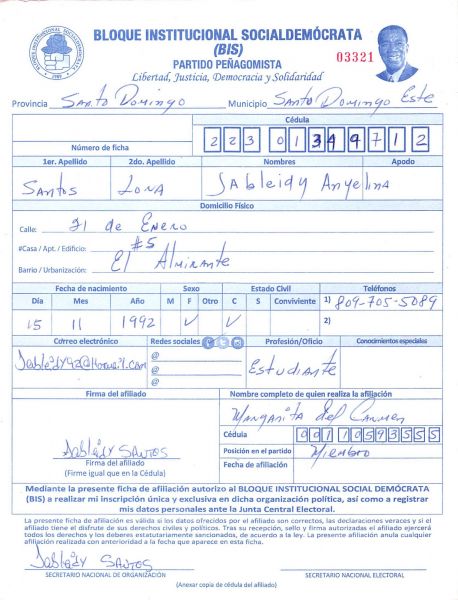 BLOQUE INSTITUCIONAL SOCIALDEMÓCRATA
(BIS)
PARTIDO PEÑAGOMISTA
Libertad, Justicia, Democracia y Solidaridad
03321
Provincia Santo Domingo Municipio Santo Domingo Este
Cédula
Número de ficha 223 0134971 2
1er. Apellido 2do. Apellido Nombres Apodo
Santos Lora Jableidy Anyelina
Domicilio Físico
Calle: 21 de Enero
#Casa / Apt. / Edificio: #5
Barrio / Urbanización: El Almirante
Fecha de nacimiento Sexo Estado Civil Teléfonos
Día Mes Año M F Otro C S Conviviente 1) 809-705-5089
15 11 1992 V V 2)
Correo electrónico Redes sociales Profesión/Oficio Conocimientos especiales
@ Estudiante
@
@
Firma del afiliado Nombre completo de quien realiza la afiliación
Margarita del Carmen
Cédula 001 1059355 5
Jableidy Santos Posición en el partido Miembro
Firma del afiliado Fecha de afiliación
(Firme igual que en la Cédula)
Mediante la presente ficha de afiliación autorizo al BLOQUE INSTITUCIONAL SOCIAL DEMÓCRATA
(BIS) a realizar mi inscripción única y exclusiva en dicha organización política, así como a registrar
mis datos personales ante la Junta Central Electoral.
La presente ficha de afiliación es válida si los datos ofrecidos por el afiliado son correctos, las declaraciones veraces y si el
afiliado tiene el disfrute de sus derechos civiles y políticos. Tras su recepción, sello y firma autorizadas el afiliado ejercerá
todos los derechos y los deberes estatutariamente sancionados, de acuerdo a la ley. La presente afiliación anula cualquier
afiliación realizada con anterioridad a la fecha que aparece en esta ficha.
Jableidy Santos
SECRETARIO NACIONAL DE ORGANIZACIÓN SECRETARIO NACIONAL ELECTORAL
(Anexar copia de cédula del afiliado)